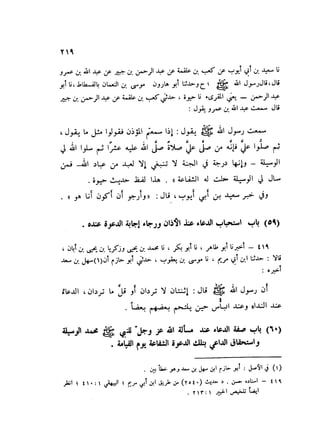 ٢١٩
نا سعيد بن أبي أيوب عن كعب بن علقمة عن عبد الرحمن بن جبير عن عبد الله بن عمرو
قال ، قال رسول الله ﷺ ح وحدثنا أبو هارون موسى بن النعمان بالفسطاط ، نا أبو
عبد الرحمن — يعني المقرىء — نا حيوة ، حدثني كعب بن علقمة عن عبد الرحمن بن جبير
قال سمعت عبد الله بن عمرو يقول :
سمعت رسول الله ﷺ يقول : إذا سمعتم المؤذن فقولوا مثل ما يقول ،
ثم صلوا علي فإنه من صلى علي صلاة صلى الله عليه عشرا ثم سلوا الله لي
الوسيلة — وإنها درجة في الجنة لا تنبغي إلا لعبد من عباد الله — فمن
سأل لي الوسيلة حلت له الشفاعة » . هذا لفظ حديث حيوة .
وفي خبر سعيد بن أبي أيوب ، قال : « وأرجو أن أكون أنا هو » .
(٥٩) باب استحباب الدعاء عند الأذان ورجاء إجابة الدعوة عنده .
٤١٩ — أخبرنا أبو طاهر ، نا أبو بكر ، نا محمد بن يحيى وزكريا بن يحيى بن أبان ،
قالا : حدثنا ابن أبي مريم ، نا موسى بن يعقوب ، حدثني أبو حازم أن(١)سهل بن سعد
أخبره :
أن رسول الله ﷺ قال : إثنتان لا تردان ، أو قل ما تردان ، الدعاء
عند النداء وعند البأس حين يلحم بعضهم بعضا .
(٦٠) باب صفة الدعاء عند مسألة الله عز وجل للنبي ﷺ محمد الوسيلة
واستحقاق الداعي بتلك الدعوة الشفاعة يوم القيامة .
(١) في الأصل : أبو حازم بن سهل بن سعد وهو خطأ بين .
٤١٩ — إسناده حسن . د حديث (٢٥٤٠) من طريق ابن أبي مريم ؛ البيهقي ١ : ٤١٠ ؛ انظر
أيضا تلخيص الحبير ١ : ٢١٣ .